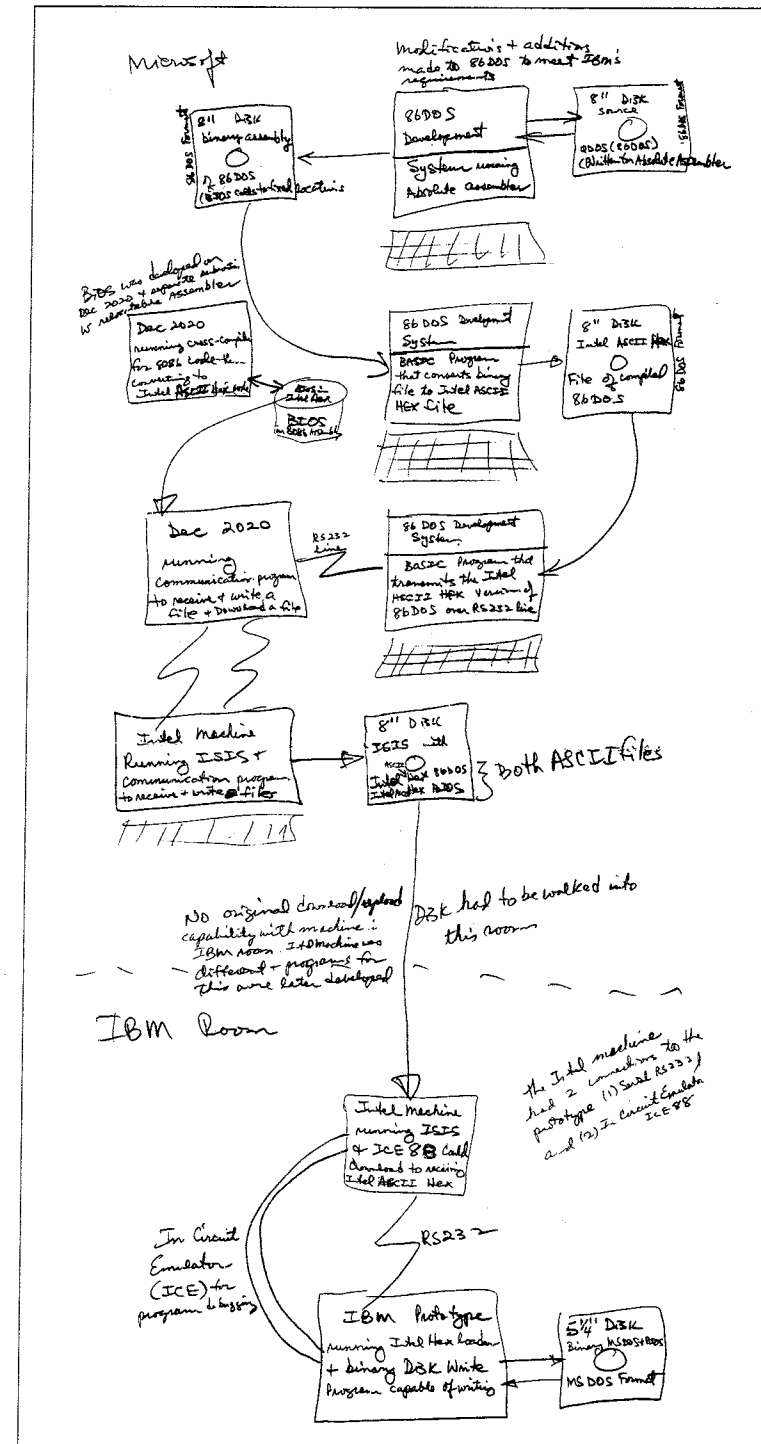 Microsoft
Modificatio's + additions
made to 86DOS to meet IBM's
requirements
86DOS Format
8" DISK
binary assembly
of 86DOS
(BIOS calls to fixed locations
86DOS
Development
System running
Absolute assembler
8" DISK
source
QDOS (86DOS)
(Written for Absolute Assembler
86DOS Format
BIOS was developed on
Dec 2020 + separate
w relocatable Assembler
Dec 2020
running cross-compiler
for 8086 code
converting to
Intel ASCII Hex code
BIOS in
Intel Hex
BIOS
in 8086
86DOS Development
System
BASIC Program
that converts binary
file to Intel ASCII
HEX file
8" DISK
Intel ASCII Hex
File of compiled
86DOS
86DOS Format
Dec 2020
running
communication program
to receive + write a
file + Download a file
RS232
line
86 DOS Development
System
BASIC Program that
transmits the Intel
ASCII HEX version of
86DOS over RS232 line
Intel Machine
Running ISIS +
Communication program
to receive + write files
8" DISK
ISIS with
ASCII
Intel Hex 86DOS
Intel Hex BIOS
Both ASCII files
No original download/upload
capability with machine i
IBM room. Itel Machine was
different + programs for
this were later developed
DISK had to be walked into
this room
IBM Room
the Intel machine
had 2 connections to the
prototype (1) Serial RS232
and (2) In Circuit Emulator
ICE 88
Intel Machine
running ISIS
& ICE 88 Could
download to receiving
Intel ASCII Hex
In Circuit
Emulator
(ICE) for
program debugging
RS232
IBM Prototype
running Intel Hex loader
+ binary DISK Write
Program capable of writing
5 1/4" DISK
Binary MSDOS+BIOS
MS DOS Format